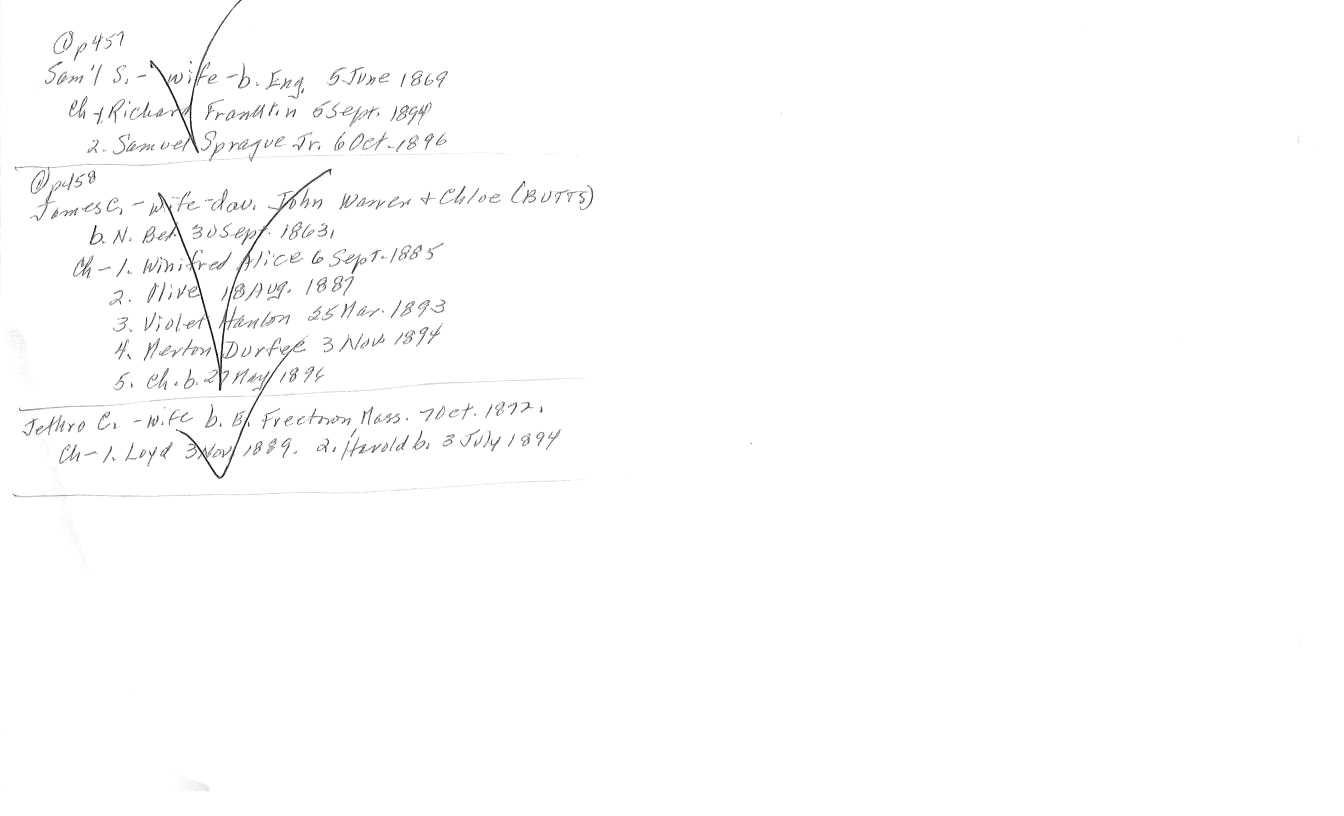 @p457
Sam'l S. - wife - b. Eng. 5 June 1869
Ch - 1. Richard Franklin 5 Sept. 1894
2. Samuel Sprague Jr. 6 Oct - 1896
@p458
James C. - wife - dau. John Warren + Chloe (BUTTS)
b. N. Bed. 30 Sept. 1863.
Ch - 1. Winifred Alice 6 Sept - 1885
2. Olive 18 Aug. 1887
3. Violet Hanlon 25 Mar. 1893
4. Merton Durfee 3 Nov 1894
5. Ch. b. 27 May 1896
Jethro C. - wife b. E. Freetown, Mass. 7 Oct. 1872.
Ch - 1. Loyd 3 Nov 1889. 2. Harold b. 3 July 1894